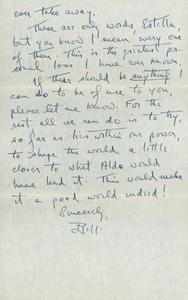 ever take away.
These are only words, Estella,
but you know I mean every one
of them. This is the greatest per-
sonal loss I have ever known.
If there should be anything I
can do to be of use to you,
please let me know. For the
rest all we can do is to try,
so far as lies within our power,
to shape the world a little
closer to what Aldo would
have had it. This would make
it a good world indeed!
Sincerely,
Bill.